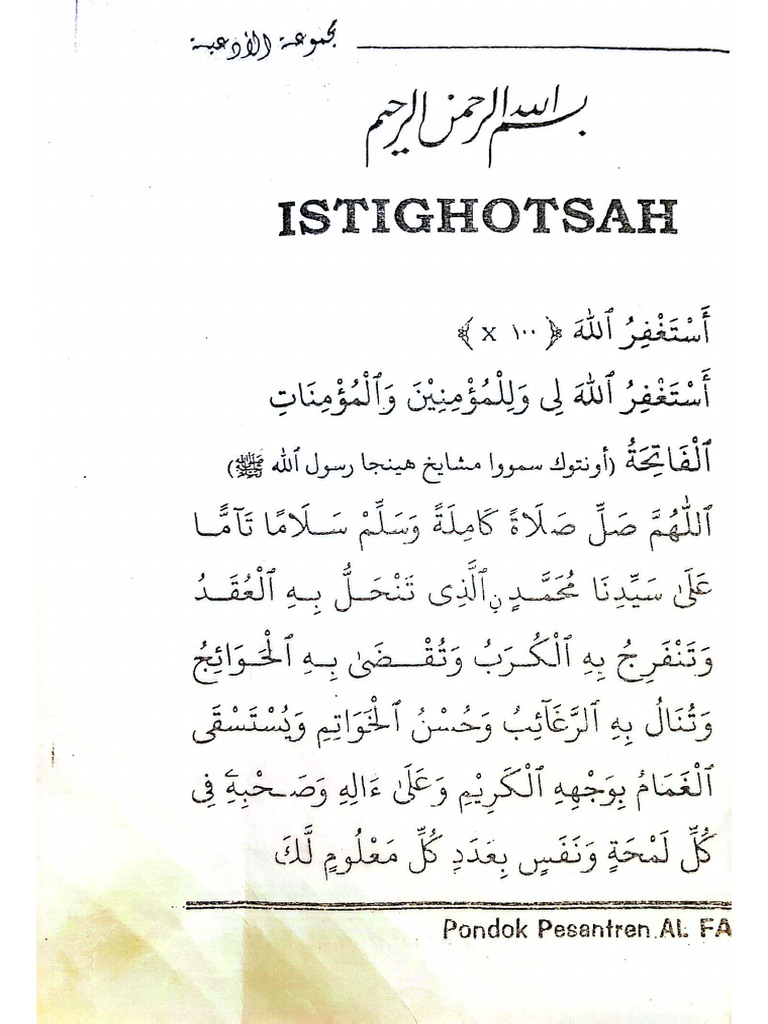 مجموعة الأدعية
بسم الله الرحمن الرحيم
ISTIGHOTSAH
أَسْتَغْفِرُ ٱللهَ ﴿ ١٠٠ X ﴾
أَسْتَغْفِرُ ٱللهَ لِى وَلِلْمُؤْمِنِيْنَ وَٱلْمُؤْمِنَاتِ
ٱلْفَاتِحَةُ (أونتوك سمووا مشايخ هينجا رسول ٱلله ﷺ)
ٱللّٰهُمَّ صَلِّ صَلَاةً كَامِلَةً وَسَلِّمْ سَلَامًا تَآمًّا
عَلَىٰ سَيِّدِنَا مُحَمَّدٍ نِ ٱلَّذِى تَنْحَلُّ بِهِ ٱلْعُقَدُ
وَتَنْفَرِجُ بِهِ ٱلْكُرَبُ وَتُقْضَىٰ بِهِ ٱلْحَوَائِجُ
وَتُنَالُ بِهِ ٱلرَّغَآئِبُ وَحُسْنُ ٱلْخَوَاتِمِ وَيُسْتَسْقَى
ٱلْغَمَامُ بِوَجْهِهِ ٱلْكَرِيْمِ وَعَلَىٰ ءَالِهِ وَصَحْبِهِۦ فِى
كُلِّ لَمْحَةٍ وَنَفَسٍ بِعَدَدِ كُلِّ مَعْلُومٍ لَّكَ
Pondok Pesantren AL FA